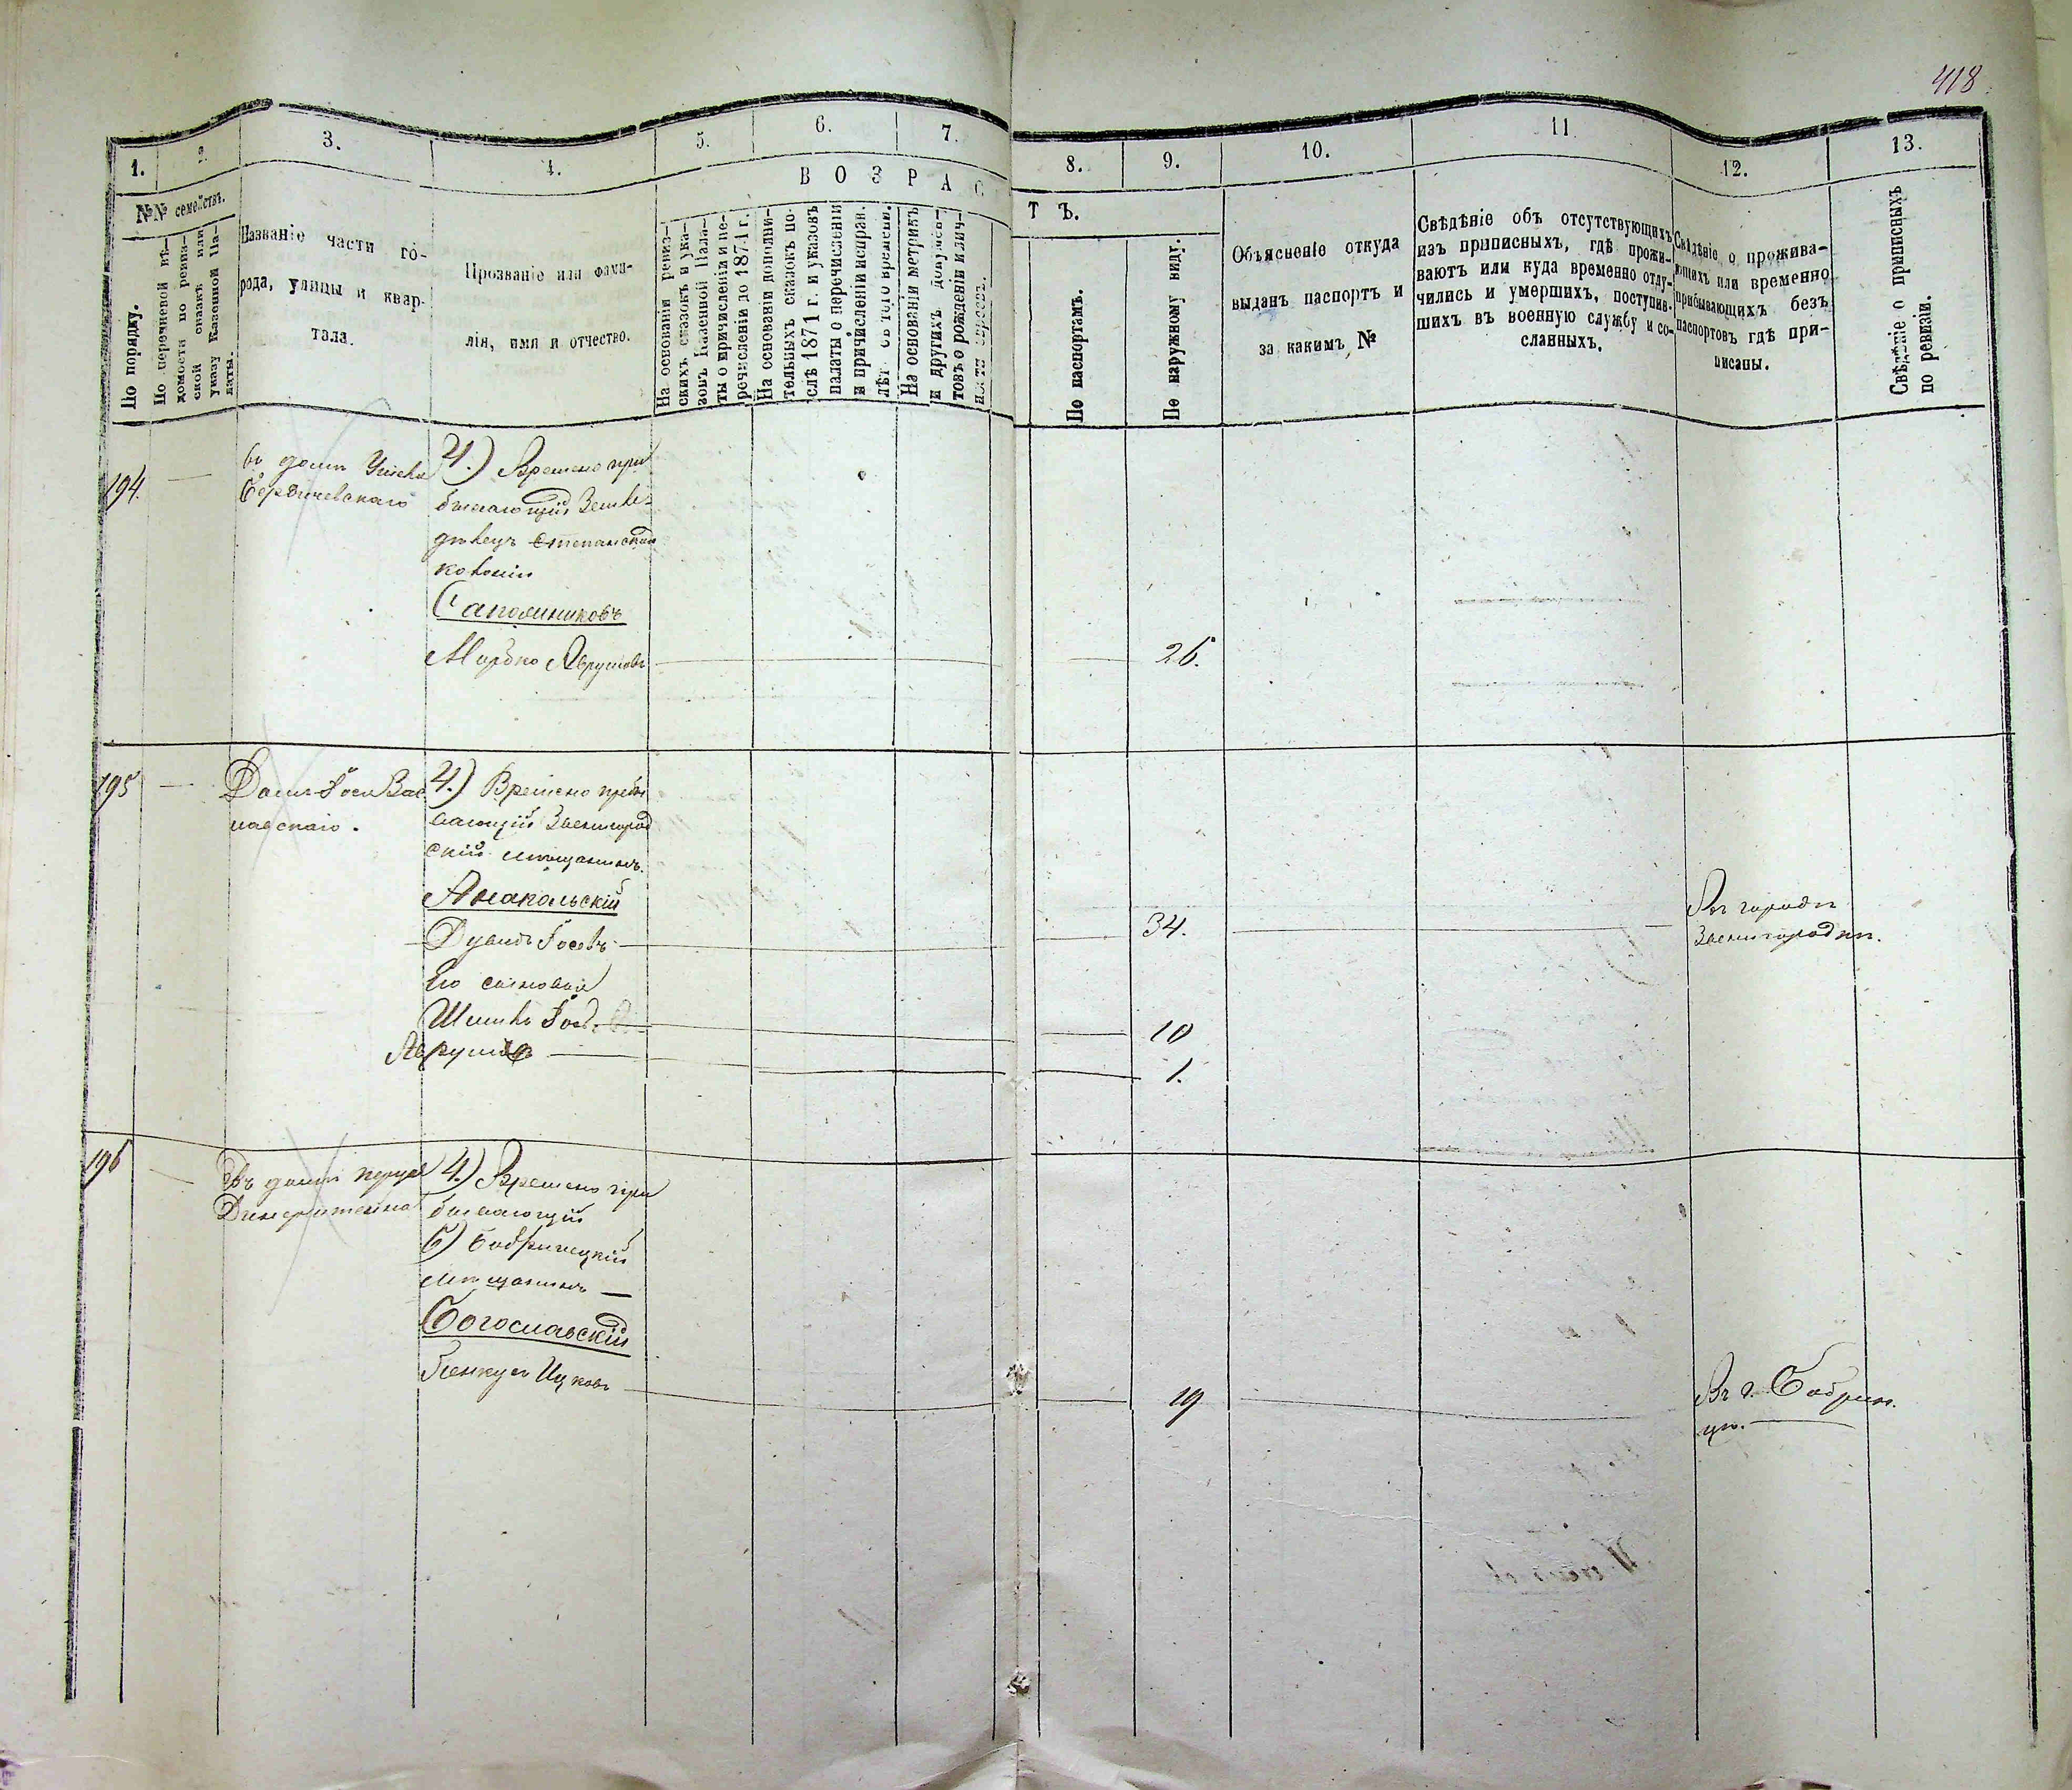 418
1.
2.
3.
4.
5.
6.
7.
8.
9.
10.
11.
12.
13.
№№ семействъ.
По порядку.
По перечневой вѣ-
домости по ревиз-
ской сказкѣ или
указу Казенной Па-
латы.
Названіе части го-
рода, улицы и квар-
тала.
Прозваніе или фами-
лія, имя и отчество.
ВОЗРАС
ТЪ.
На основаніи ревиз-
скихъ сказокъ и ука-
зовъ Казенной Пала-
ты о причисленіи и пе-
речисленіи до 1874 г.
На основаніи дополни-
тельныхъ сказокъ по-
слѣ 1871 г. и указовъ
палаты о перечисленіи
и причисленіи исправ.
лѣт съ того времени.
На основаніи метрикъ
и другихъ докумен-
товъ о рожденіи и лич-
По паспортамъ.
По наружному виду.
Объясненіе откуда
выданъ паспортъ и
за какимъ №
Свѣдѣніе объ отсутствующихъ
изъ приписныхъ, гдѣ прожи-
ваютъ или куда временно отлу-
чились и умершихъ, поступив-
шихъ въ военную службу и со-
сланныхъ.
Свѣдѣніе о прожива-
ющихъ или временно
прибывающихъ безъ
паспортовъ гдѣ при-
писаны.
Свѣдѣніе о приписныхъ
по ревизіи.
194.
въ домѣ
Бердичевскаго
4.) Времено при
бывающій Земле-
дѣлецъ Степанской
колоніи
Сапожниковъ
Мордко Аврумовъ
26.
195
Домъ Іося Зас
лавскаго.
4.) Времено пребы
вающій Звенигород
скій мѣщанинъ.
Анапольскій
Дувидъ Іосевъ
34.
Въ городѣ
Звенигородкѣ.
Его сыновья
Шмиль
10
Аврумъ
1.
196
Въ домѣ
4.) Времено при
бывающій
Б) Бобринецкій
мѣщанинъ
Богославскій
Пенкусъ Ицковъ
19
Въ г. Бобрин.
цѣ.